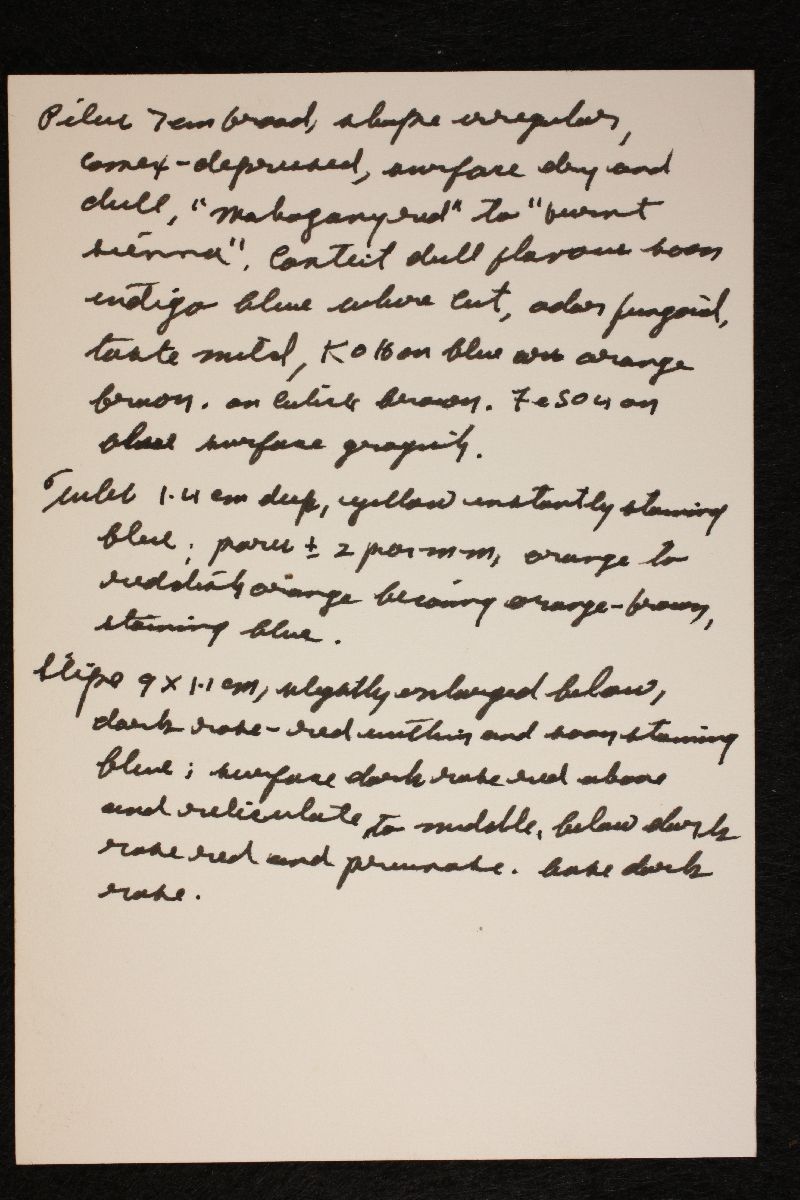 Pileus 7 cm broad, shape irregular,
convex-depressed, surface dry and
dull, "mahogany red" to "burnt
sienna". Context dull flavous soon
indigo blue where cut, odor fungoid,
taste mild, KOH on blue orange
brown. on cuticle brown. FeSO4 on
surface grayish.
Tubes 1.4 cm deep, yellow instantly staining
blue; pores ± 2 per mm, orange to
reddish orange becoming orange-brown,
staining blue.
Stipe 9 X 1.1 cm, slightly enlarged below,
dark rose-red within and soon staining
blue; surface dark rose red above
and reticulate to middle, below dark
rose red and pruinose. base dark
rose.